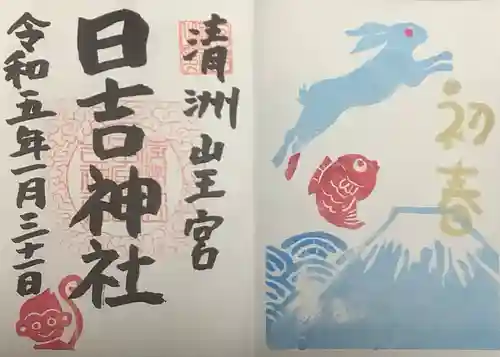 清洲山王宮
日吉神社
令和五年一月三十一日
初春